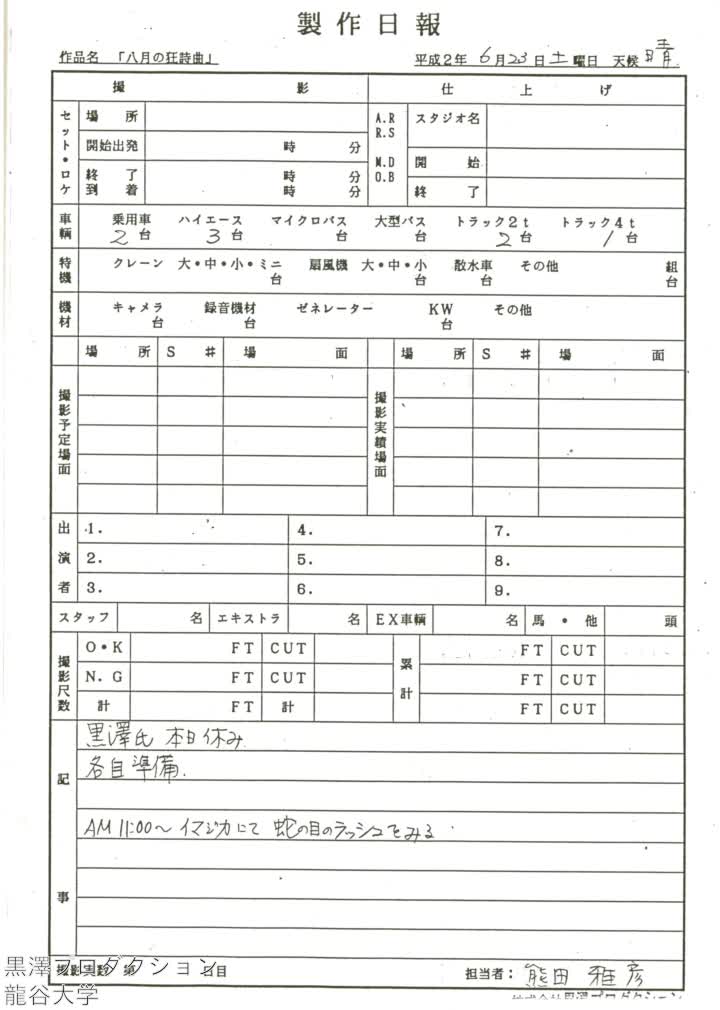 製作日報
作品名 「八月の狂詩曲」 平成2年 6月23日土曜日 天候 晴
撮 影 仕 上 げ
セット・ロケ 場 所 A.R R.S M.D O.B スタジオ名
開始出発 時 分 開 始
終 了 時 分 終 了
到 着 時 分
車輌 乗用車 ハイエース マイクロバス 大型バス トラック2t トラック4t
2台 3台 台 台 2台 1台
特機 クレーン 大・中・小・ミニ 扇風機 大・中・小 散水車 その他 組
台 台 台 台
機材 キャメラ 録音機材 ゼネレーター KW その他
台 台 台
場 所 S # 場 面 場 所 S # 場 面
撮影予定場面 撮影実績場面
出演者 1. 4. 7.
2. 5. 8.
3. 6. 9.
スタッフ 名 エキストラ 名 EX車輌 名 馬・他 頭
撮影尺数 O・K FT CUT 累計 FT CUT
N.G FT CUT FT CUT
計 FT 計 FT CUT
記事 黒澤氏 本日休み
各自準備.
AM 11:00〜 イマジカにて 蛇の目のラッシュをみる
撮影実数 第 日目 担当者: 熊田 雅彦
株式会社黒澤プロダクション
黒澤プロダクション
龍谷大学